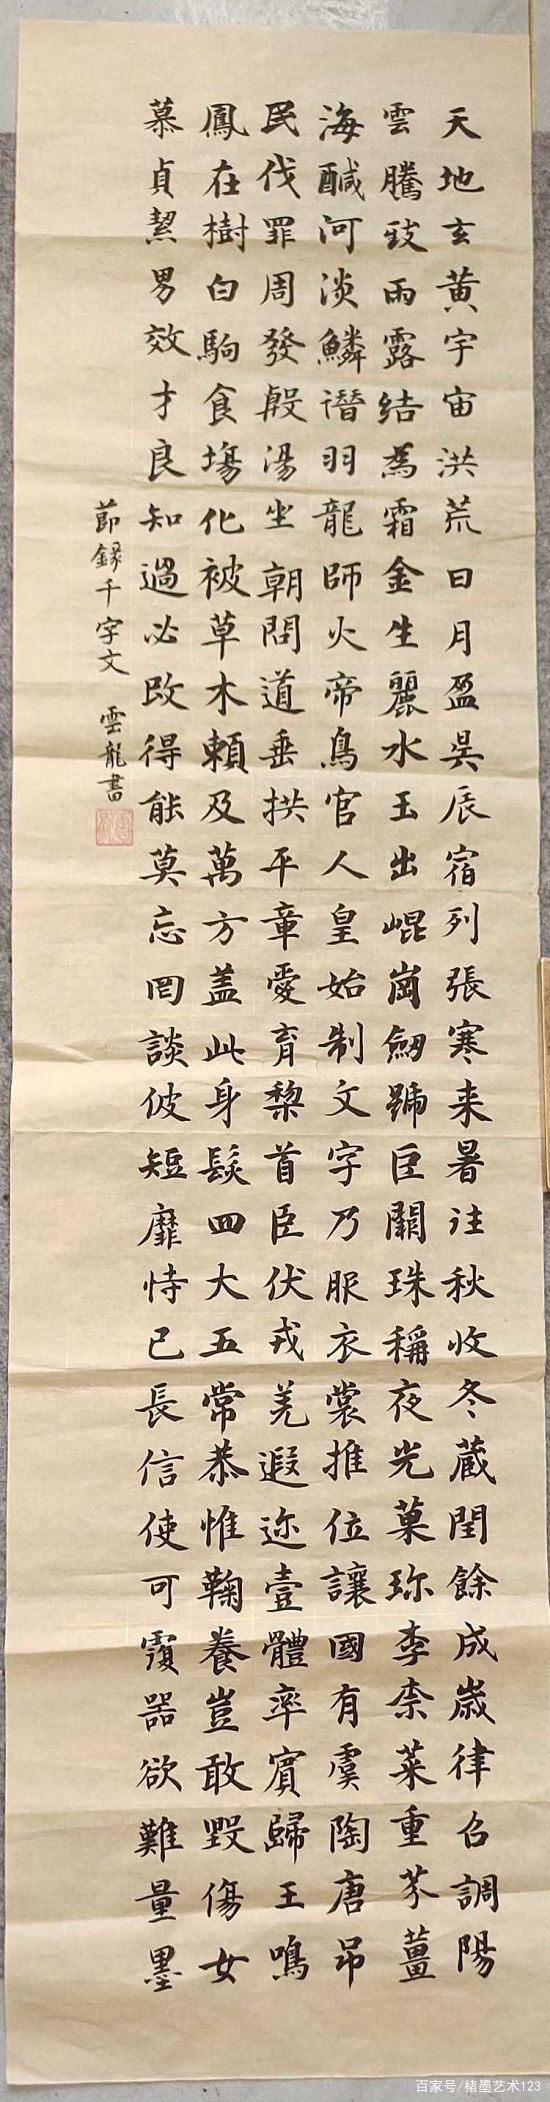 天地玄黃宇宙洪荒日月盈昃辰宿列張寒来暑往秋收冬蔵閏餘成歲律召調陽
雲騰致雨露結為霜金生麗水玉出崐崗劒號巨闕珠稱夜光菓珎李柰菜重芥薑
海鹹河淡鱗潛羽龍師火帝鳥官人皇始制文字乃服衣裳推位讓國有虞陶唐吊
民伐罪周發殷湯坐朝問道垂拱平章愛育黎首臣伏戎羌遐迩壹體率賓歸王鳴
鳳在樹白駒食場化被草木賴及萬方盖此身髮四大五常恭惟鞠養豈敢毀傷女
慕貞絜男效才良知過必改得能莫忘罔談彼短靡恃己長信使可覆器欲難量墨
節録千字文 雲龍書
百家号/楮墨艺术123